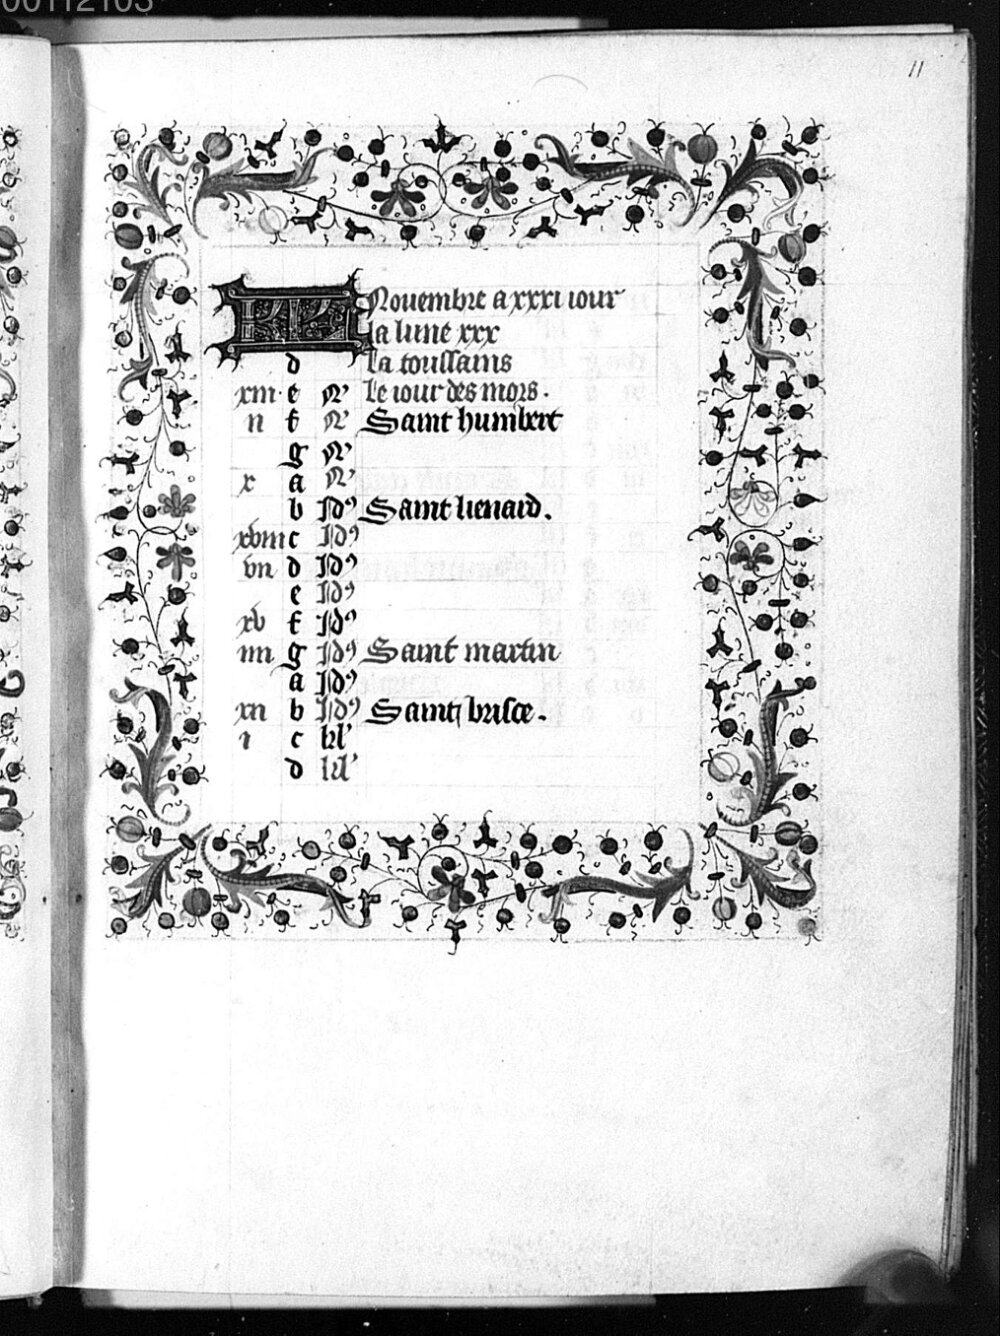 00112103
11
KL Nouembre a xxxi iour
la lune xxx
d La toussains
xiii e N' Le iour des mors.
ii f N' Saint humbert
g N'
x a N'
b Id' Saint lienard.
xviii c Id'
vii d Id'
e Id'
xv f Id'
iiii g Id' Saint martin
a Id'
xii b Id' Saint brisce.
i c kl'
d kl'